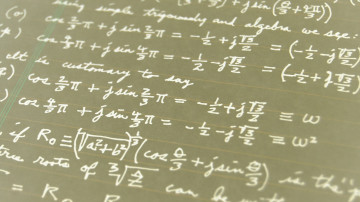 (θ/3 + 4π/3)
using simple trigonometry and algebra we see:
cos 2/3 π + j sin 2/3 π = -1/2 + j √3/2 = (-1/2 - j √3/2
cos 4/3 π + j sin 4/3 π = -1/2 - j √3/2 = (-1/2 + j √3/2
It is customary to say
cos 2/3 π + j sin 2/3 π = -1/2 + j √3/2 ≡ w
cos 4/3 π + j sin 4/3 π = -1/2 - j √3/2 ≡ w²
if R₀ ≡ (√a²+b²)^1/3 (cos θ/3 + j sin θ/3) is the
roots of ∛z can be
= R₀